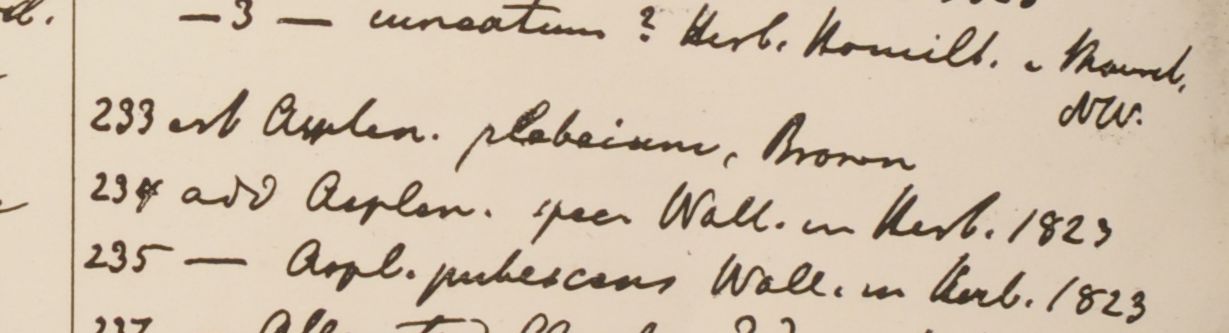 — 3 — cuneatum? Herb. Hamilt. e
NW.
233 est Asplen. plebeium, Brown
234 add Asplen. Wall. in Herb. 1823
235 — Aspl. pubescens Wall. in Herb. 1823
237